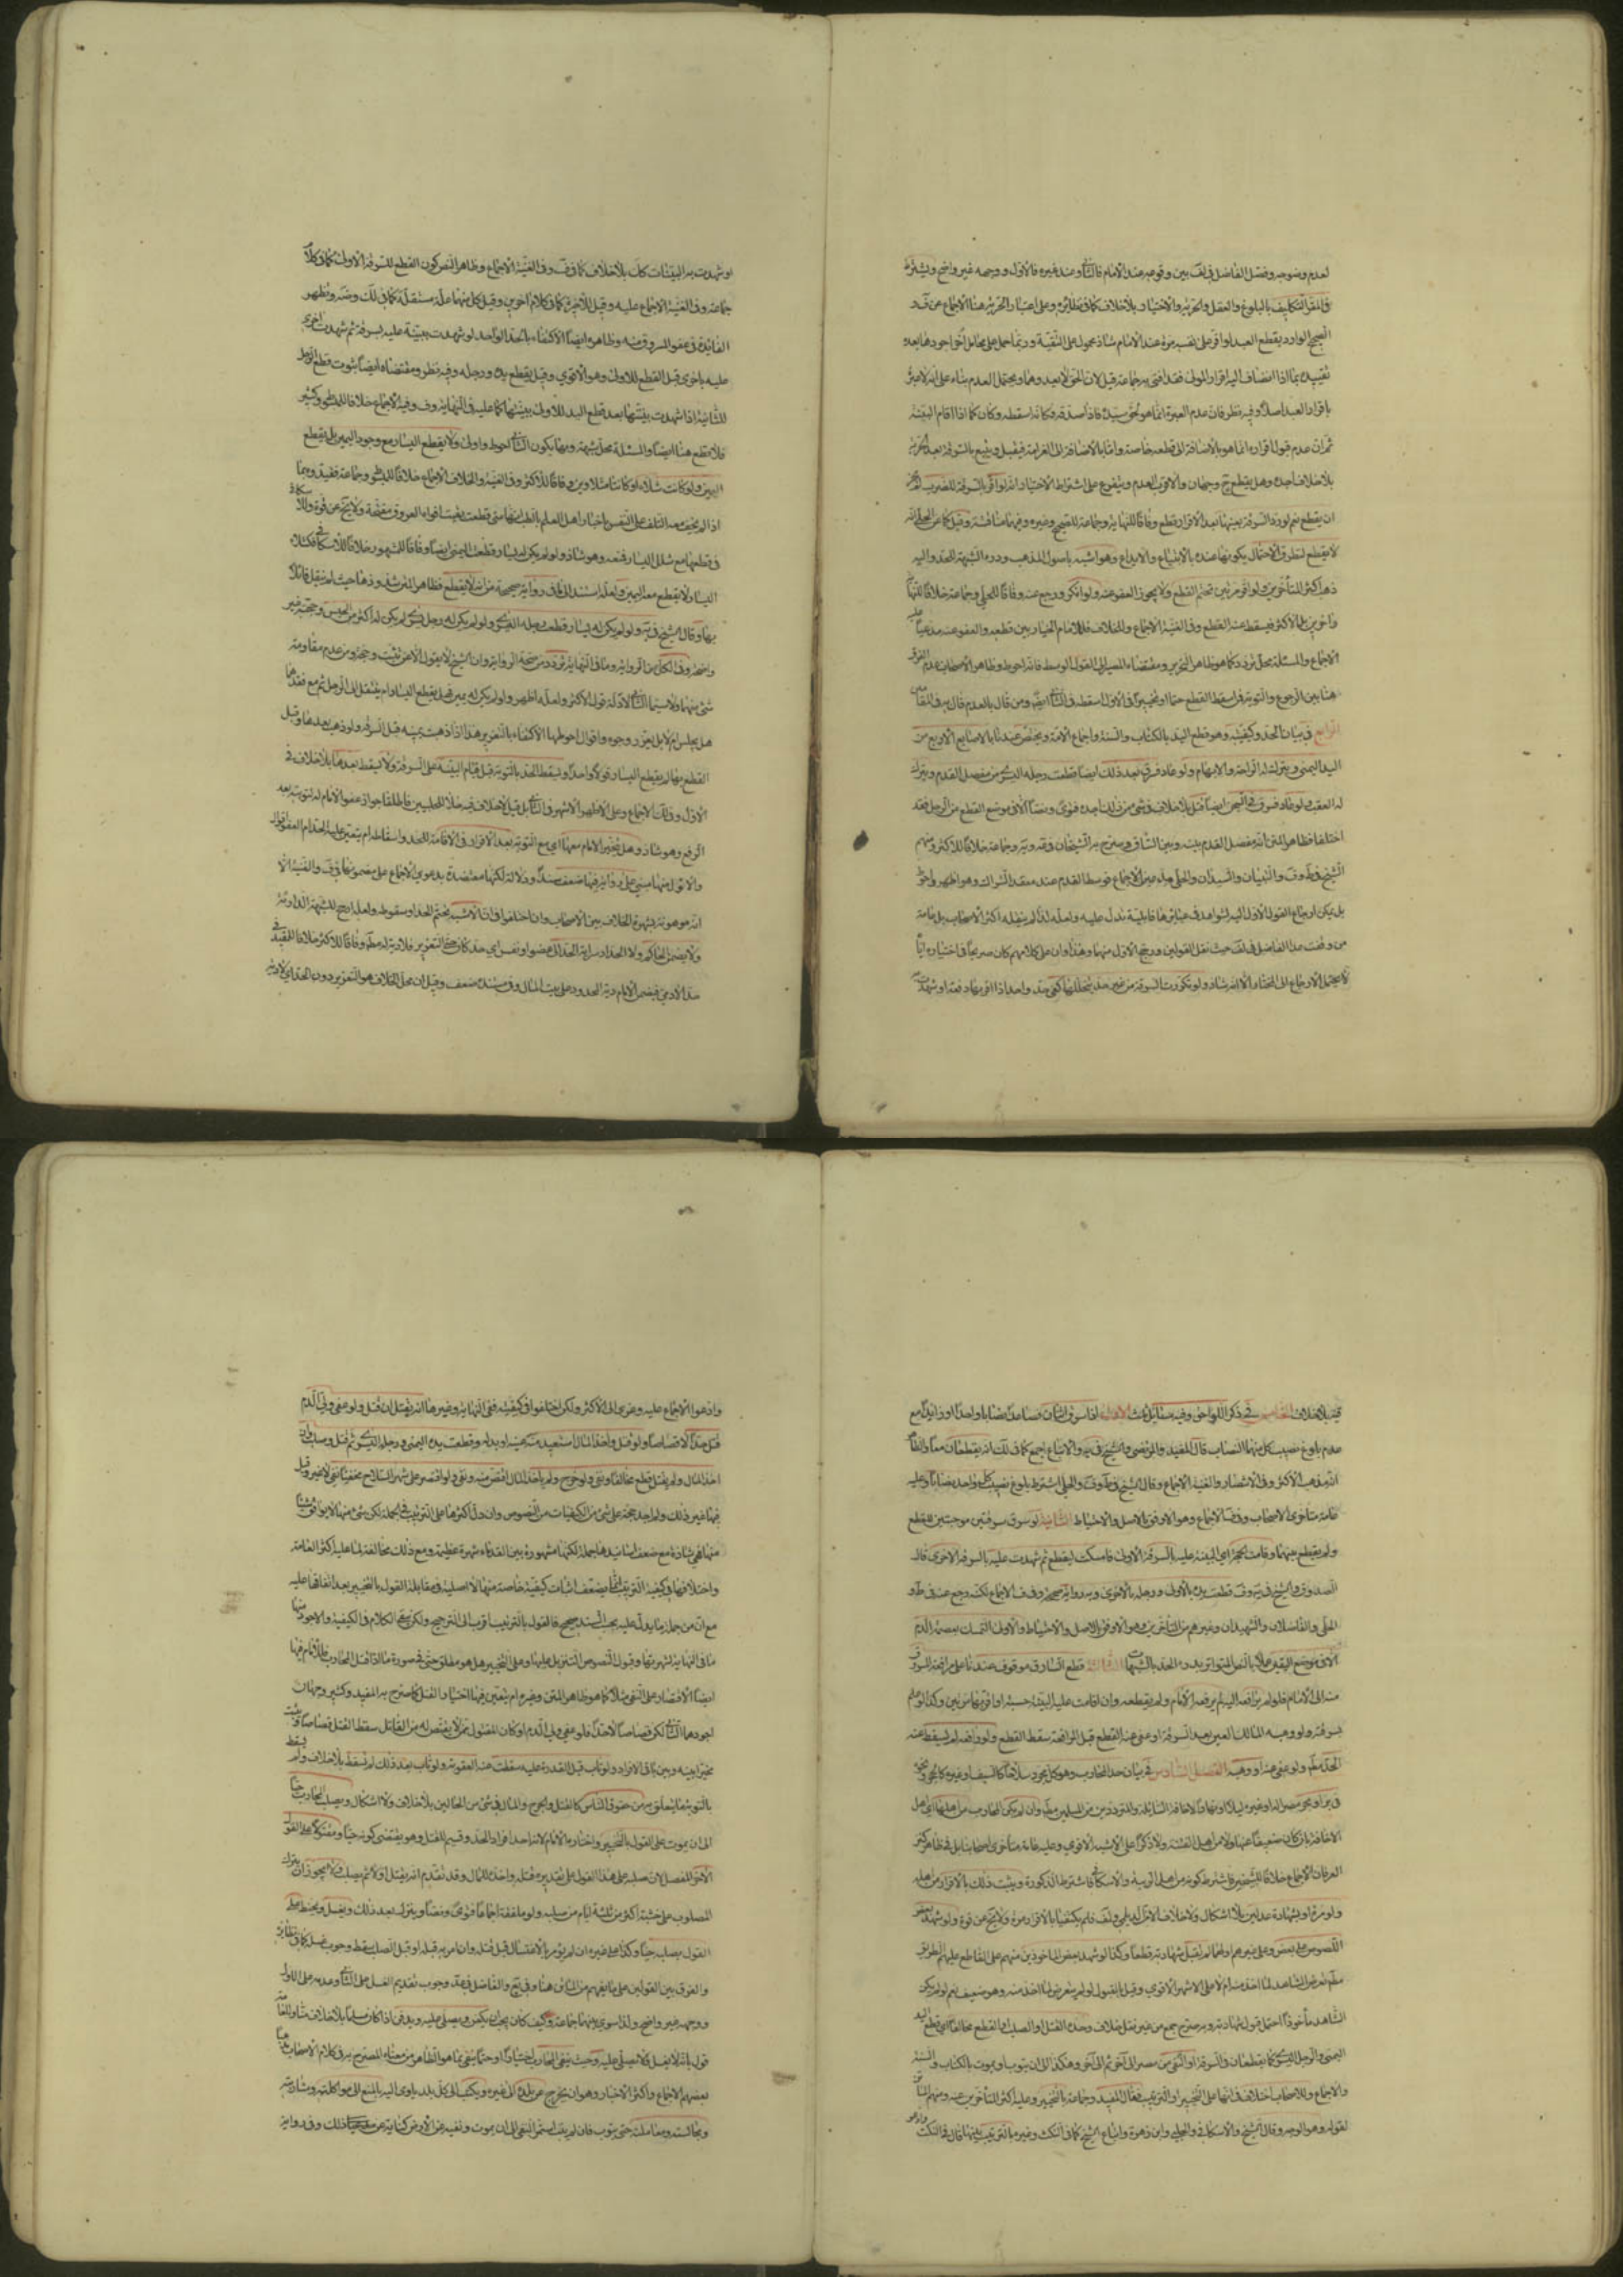 لعدم وضوحه وفصل الفاضل في لف بين وقوعه عند الامام فالثاني وعند غيره فالاول ووجهه غير واضح ويشترط
في المقر التكليف بالبلوغ والعقل والحرية والاختيار بلا خلاف كما في نظائره وعلى اعتبار الحرية هنا الاجماع عن ف و
الصحيح الوارد بقطع العبد لو اقر على نفسه مرة عند الامام شاذ محمول على التقية وربما حمل على محامل أخر اجودها بعده
تقييده بما اذا انضاف اليه اقرار المولى فقد افتى به جماعة قيل لان الحق لا يعدوهما ويحتمل العدم بناء على انه لا عبرة
باقرار العبد اصلا وفيه نظر فان عدم العبرة انما هو لحق سيده فاذا صدقه فكانه اسقطه وكان كما اذا اقام البينة
ثم ان عدم قبول اقراره انما هو بالاضافة الى قطعه خاصة واما بالاضافة الى الغرامة فيقبل ويتبع بالسرقة بعد الحرية
بلا خلاف اجده وهل يقطع ح وجهان والاقوى العدم ويتفرع على اشتراط الاختيار انه لو اقر بالسرقة للضرب لم يجز
ان يقطع نعم لو رد السرقة بعينها بعد الاقرار قطع وفاقا للنهاية وجماعة للصحيح وغيره وفيهما مناقشة وقيل كما عن الحلي انه
لا يقطع لتطرق الاحتمال بكونها عنده بالابتياع والايداع وهو اشبه باصول المذهب ودرء الشبهة للحد واليه
ذهب اكثر المتأخرين ولو اقر مرتين تحتم القطع ولا يجوز العفو عنه ولو انكر ورجع عنه وفاقا للحلي وجماعة خلافا للنهاية
وآخرين بل الاكثر فيسقط عنه القطع وفي الغنية الاجماع وللخلاف فللامام الخيار بين قطعه والعفو عنه مدعيا عليه
الاجماع والمسئلة محل تردد كما هو ظاهر التحرير ومقتضاه المصير الى القول الوسط فانه احوط وظاهر الاصحاب عدم الفرق
هنا بين الرجوع والتوبة فمن اسقط القطع حتما او تخييرا في الاول اسقطه في الثاني ايضا ومن قال بالعدم قال به في المقامين
الرابع في بيان الحد وكيفيته وهو قطع اليد بالكتاب والسنة واجماع الامة ويختص عندنا بالاصابع الاربع من
اليد اليمنى ويترك له الراحة والابهام ولو عاد فسرق بعد ذلك ايضا قطعت رجله اليسرى من مفصل القدم ويترك
له العقب ولو عاد فسرق في الحبس ايضا قتل بلا خلاف في شيء من ذلك اجده فتوى ونصا الا في موضع القطع من الرجل فقد
اختلفا فظاهر المتن انه مفصل القدم
الشيخ في ط وف والتبيان والسيدان والحلي مدعين الاجماع فوسط القدم عند معقد الشراك وهو اظهر واحوط
بل يمكن ارجاع القول الاول اليه لشواهد في عبائرها قابلية تدل عليه ولعله لذا لم ينقله اكثر الاصحاب بل عامة
من وقفت عدا الفاضل في لف حيث نقل القولين ورجح الاول منهما وهذا وان
لا يحتمل الارجاع الى المختار الا انه شاذ ولو تكررت السرقة من غير حد يتخللها كفى حد واحد اذا اقر بها دفعة او شهدت
او شهدت به البينات كك بلا خلاف كما في ف وفي الغنية الاجماع وظاهر النص كون القطع للسرقة الاولى كما في كلام
جماعة وفي الغنية الاجماع عليه وقيل للاخيرة كما في كلام آخرين وقيل كل منهما علة مستقلة كما في لك وضه وتظهر
الفائدة في عفو المسروق منه وظاهره ايضا الاكتفاء بالحد الواحد لو شهدت بينة عليه بسرقة ثم شهدت اخرى
عليه باخرى قبل القطع للاولى وهو الاقوى وقيل يقطع يده ورجله وفيه نظر ومقتضاه ايضا ثبوت قطع الرجل
للثانية اذا شهدت بينتها بعد قطع اليد للاولى ببينتها كما عليه في النهاية وف وفيه الاجماع خلافا للمبسوط وكثير
فلا قطع هنا ايضا والمسئلة محل شبهة وربما يكون الثاني احوط واولى ولا يقطع اليسار مع وجود اليمين بل يقطع
اليمين ولو كانت شلاء او كانتا شلاوين وفاقا للاكثر وفي الغنية والخلاف الاجماع خلافا للمبسوط وجماعة فقيدوه بما
اذا لم يخف معه التلف على النفس
في قطعها مع شلل اليسار فمنعه وهو شاذ ولو لم يكن له يسار قطعت اليمنى ايضا وفاقا للمشهور خلافا للاسكافي فكشلاء
اليسار ولا يقطع معه اليمين ولعله استند الى ما في رواية صحيحة من انه لا يقطع
بها وقال الشيخ في ية ولو لم يكن له يسار قطعت رجله اليسرى ولو لم يكن له رجل يسرى لم يكن له اكثر من الحبس وحجته غير
واضحة وفي الكل من الرواية وما في النهاية تردد من صحة الرواية وان الشيخ لا يقول الا عن تثبت وحجة ومن عدم مقاومة
شيء منهما ولا سيما الثاني لادلة قول الاكثر ولعله اظهر ولو لم يكن له يمين فهل يقطع اليسار ام ينتقل الى الرجل ثم مع فقدهما
هل يحبس ام لا بل يعزر وجوه واقوال احوطها الاكتفاء بالتعزير هذا اذا ذهبت يمينه قبل السرقة ولو ذهبت بعدها وقبل
القطع بها لم يقطع اليسار قولا واحدا ويسقط الحد بالتوبة قبل قيام البينة على السرقة ولا يسقط بعدها بلا خلاف في
الاول وذلك الاجماع وعلى الاظهر الاشهر في الثاني بل قيل لا خلاف فيه خلافا للحلبيين فاطلقا جواز عفو الامام له لتوبته بعد
الرفع وهو شاذ وهل يتخير الامام معها اي مع التوبة بعد الاقرار في الاقامة للحد واسقاطه ام يتعين عليه الحد ام العفو اقوال
والاول منها مبني على رواية فيها ضعف سندا ودلالة لكنها معتضدة بدعوى الاجماع على مضمونها في ف والغنية الا
انه موهونة بشهرة الخلاف بين الاصحاب وان اختلفوا في ان الاشبه تحتم الحد او سقوطه ولعله ارجح للشبهة الدارئة
ولا يضمن الحاكم ولا الحداد سراية الحد الى عضو او نفس اي حد كان حتى التعزير فلا دية له مطلقا وفاقا للاكثر خلافا للمفيد في
حد الآدمي فيضمن الامام دية المحدود على بيت المال وفي مستنده ضعف وقيل ان محل الخلاف هو التعزير دون الحد اي لا دية
فيه بلا خلاف الخامس في ذكر اللواحق وفيه مسائل ثلث الاولى اذا سرق اثنان فصاعدا نصابا واحدا او زائدا مع
عدم بلوغ نصيب كل منهما النصاب قال المفيد والمرتضى والشيخ في ية والاتباع اجمع كما في لك انه يقطعان معا وانه
انه مذهب الاكثر وفي الانتصار والغنية الاجماع وقال الشيخ في ط وف والحلي اشترط بلوغ نصيب كل واحد نصابا وعليه
عامة متأخري الاصحاب وف الاجماع وهو الاوفق بالاصل والاحتياط الثانية لو سرق سرقتين موجبتين للقطع
ولم يقطع بينهما وقامت الحجة اي البينة عليه بالسرقة الاولى فامسكت ليقطع ثم شهدت عليه بالسرقة الاخرى قال
الصدوق والشيخ في ية وف قطعت يده بالاولى ورجله بالاخرى وبه رواية صحيحة وف ف الاجماع لكنه رجع عنه في ط و
الحلي والفاضلان والشهيدان وغيرهم من المتأخرين وهو الاوفق بالاصل والاحتياط والاولى التمسك بعصمة الدم
الا في موضع اليقين عملا بالنص المتواتر بدرء الحد بالشبهات الثالثة قطع السارق موقوف عندنا على مرافعة المسروق
منه الى الامام فلو لم يرافعه اليه لم يرفعه الامام ولم يقطعه وان اقامت عليه البينة حسبة او اقر بها مرتين وكذا لو علم
بسرقته ولو وهبه المالك العين بعد السرقة او عفى عنه القطع قبل المرافعة سقط القطع ولو رافعه لم يسقط عنه
الحد مطلقا ولو عفى عنه او وهبه الفصل السادس في بيان حد المحارب وهو كل مجرد سلاحا كالسيف او غيره كالحجر ونحوه
في بر او بحر مصر او غيره ليلا او نهارا لاخافة السابلة والمترددين من المسلمين مطلقا وان لم يكن المحارب من اهلها اي اهل
الاخافة بان كان ضعيفا عنها ولا من اهل الفتنة ولا ذكرا على الاشبه الاقوى وعليه عامة متأخري اصحابنا بل في ظاهر كنز
العرفان الاجماع خلافا للشيخين فاشترط كونه من اهل الريبة والاسكافي فاشترط الذكورة ويثبت ذلك بالاقرار من اهله
ولو مرة او بشهادة عدلين بلا اشكال ولا خلاف الا من الديلمي ولف فلم يكتفيا بالاقرار مرة ولا يخ عن قوة ولو شهد بعض
اللصوص على بعض وعلى غيرهم او لهما لم تقبل شهادته قطعا وكذا لو شهد بعض المأخوذين منهم على القاطع عليهم الطريق
مطلقا تعرض الشاهد لما اخذ منه ام لا على الاشهر الاقوى وقيل بالقبول لو لم يتعرض لما اخذ منه وهو ضعيف نعم لو لم يكن
الشاهد مأخوذا احتمل قبول شهادته وبه صرح جمع من غير نقل خلاف وحده القتل او الصلب او القطع مخالفا اي قطع اليد
اليمنى والرجل اليسرى كما يقطعان في السرقة او النفي من مصر الى آخر ثم الى آخر وهكذا الى ان يتوب او يموت بالكتاب والسنة
والاجماع وللاصحاب اختلاف في انها على التخيير او الترتيب فقال المفيد وجماعة بالتخيير وعليه اكثر المتأخرين عنه ومنهم الماتن
لقوله وهو الوجه وقال الشيخ والاسكافي والحلبي وابن زهرة واتباع الشيخ كما في النكت وغيره بالترتيب بينها قال في النكت
وادعوا الاجماع عليه وعزي الى الاكثر ولكن اختلفوا في كيفيته ففي النهاية وغيرها انه يقتل ان قتل ولو عفى ولي الدم
قتل حدا لا قصاصا ولو قتل واخذ المال استعيد منه عينه او بدله وقطعت يده اليمنى ورجله اليسرى ثم قتل وصلب وان
اخذ المال ولم يقتل قطع مخالفا ونفي ولو جرح ولم يأخذ المال اقتص منه ونفي ولو اقتصر على شهر السلاح مخيفا نفي لا غير وقيل
فيها غير ذلك ولم اجد حجة على شيء من الكيفيات من النصوص وان دل اكثرها على الترتيب في الجملة لكن شيء منها لا يوافق شيئا
منها فهي شاذة مع ضعف اسانيدها جملة لكنها مشهورة بين القدماء شهرة عظيمة ومع ذلك مخالفة لما عليه اكثر العامة
واختلافها في كيفية الترتيب انما يضعف اثبات كيفية خاصة منها لا اصليته في مقابلة القول بالتخيير بعد اتفاقها عليه
مع ان من جملتها ما يدل عليه بحسب السند صحيح فالقول بالترتيب اقرب الى الترجيح ولكن يبقى الكلام في الكيفية والاجود منها
ما في النهاية لشهرتها وقبول النصوص التنزيل عليها وعلى التخيير هل هو مطلق حتى في صورة ما اذا قتل المحارب فللامام فيها
ايضا الاقتصار على النفي مثلا كما هو ظاهر المتن وغيره ام يتعين فيها اختيار القتل كما صرح به المفيد وكثير وجهان
اجودهما الثاني لكن قصاصا لا حدا فلو عفى ولي الدم او كان المقتول ممن لا يقتص له من القاتل سقط القتل قصاصا وثبت
تخييرا بينه وبين باقي الافراد ولو تاب قبل القدرة عليه سقطت عنه العقوبة ولو تاب بعد ذلك لم تسقط بلا خلاف ولم يسقط
بالتوبة ما يتعلق به من حقوق الناس كالقتل والجرح والمال في شيء من الحالين بلا خلاف ولا اشكال ويصلب المحارب حيا
الى ان يموت على القول بالتخيير واختاره الامام لانه احد افراد الحد وقسيم للقتل وهو يقتضي كونه حيا ومقتولا على القول
الآخر المفصل لان صلبه على هذا القول على تقدير قتله واخذه للمال وقد تقدم انه يقتل اولا ثم يصلب ولا يجوز ان يترك
المصلوب على خشبته اكثر من ثلثة ايام من صلبه ولو ملفقة اجماعا فتوى ونصا وينزل بعد ذلك ويغسل ويحنط على
القول بصلبه حيا وكذا على غيره ان لم يؤمر بالاغتسال قبل قتله وان امر به قبله او قبل الصلب سقط وجوب غسله كما في نظائره
والفرق بين القولين على ما يفهم من الماتن هنا وفي يع والفاضل في عد وجوب تقديم الغسل على الثاني وعدمه على الاول
ووجهه غير واضح ولذا سوى بينهما جماعة وكيف كان يجب ان يكفن ويصلى عليه ويدفن اذا كان مسلما بلا خلاف
قول بانه لا يغسل ولا يصلى عليه وحيث ينفى المحارب اختيارا او حتما ينفى بما هو الظاهر من معناه المصرح به في كلام الاصحاب
بعضهم الاجماع واكثر الاخبار وهو ان يخرج عن بلده الى غيره ويكتب الى كل بلد يأوي اليه بالمنع الى مواكلته ومشاربته
ومجالسته ومعاملته حتى يتوب فان لم يتب استمر النفي الى ان يموت ونفيه عن الارض كناية عن ذلك وفي رواية